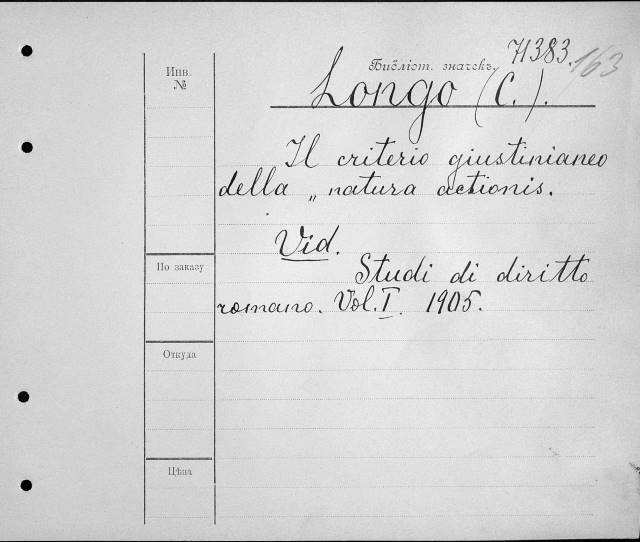 71383.
163
Инв.
№
Библіот. значекъ
Longo (C.).
Il criterio giustinianeo
della „ natura actionis.
Vid.
Studi di diritto
romano. Vol. I. 1905.
По заказу
Откуда
Цѣна